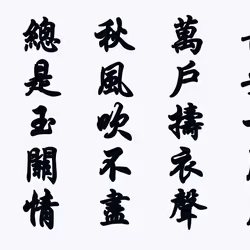 萬戶擣衣聲
秋風吹不盡
總是玉關情